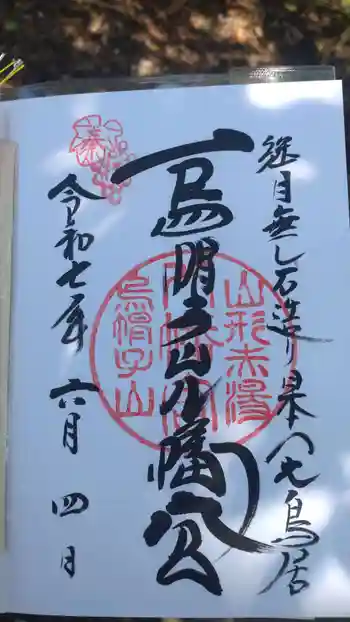 継目無し石造り日本一の大鳥居
烏帽子山八幡宮
山形赤湯
烏帽子山
奉
令和七年 六月 四日